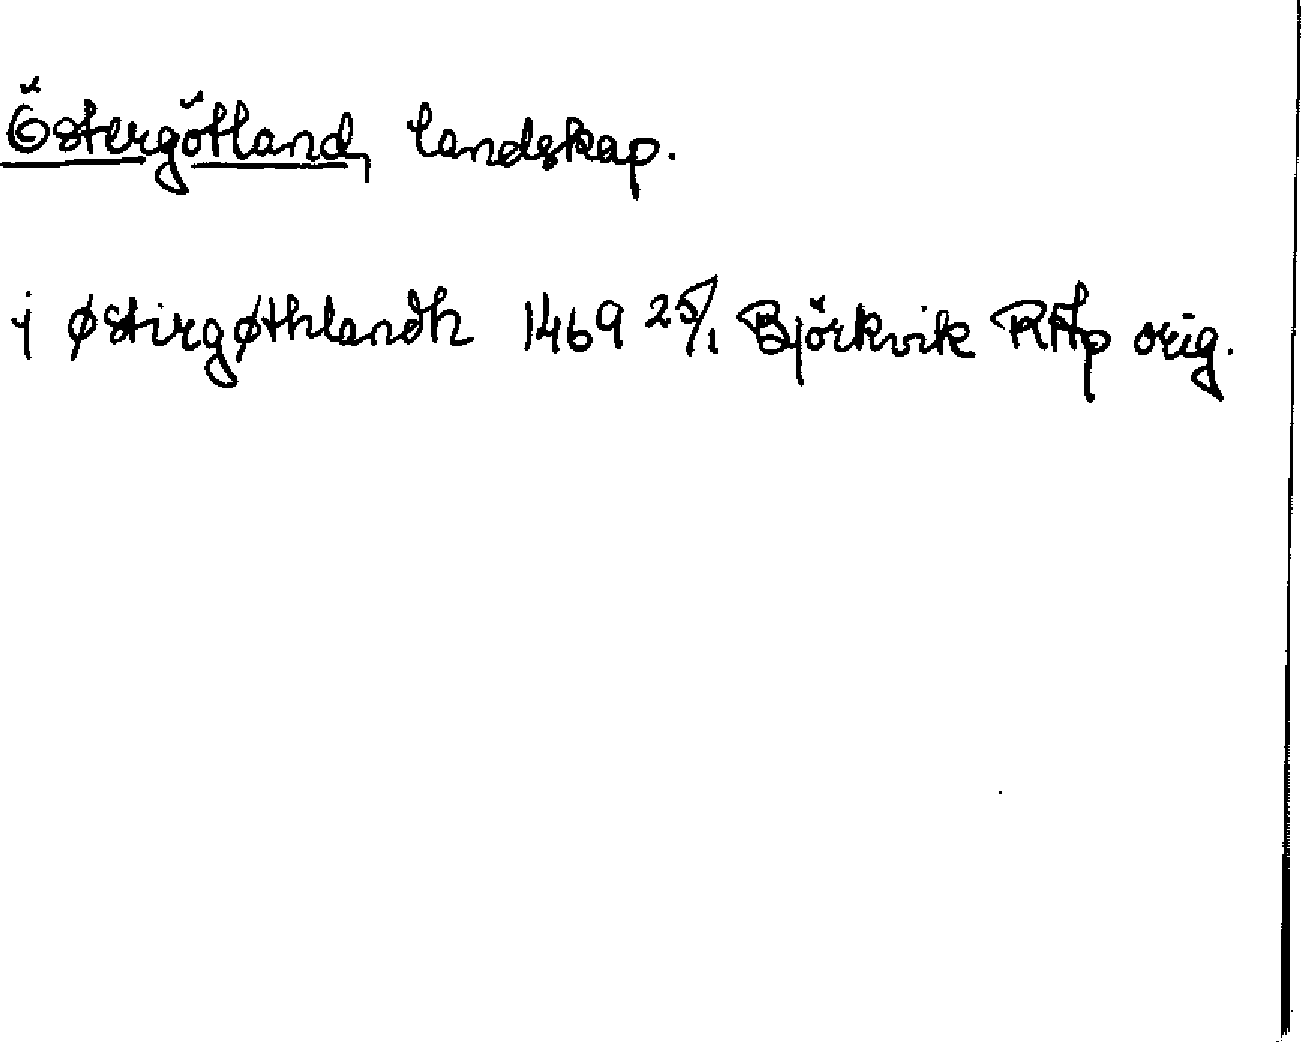 Östergötland, landskap.
j østirgøthlandh 1469 25/1 Björkvik RAp orig.